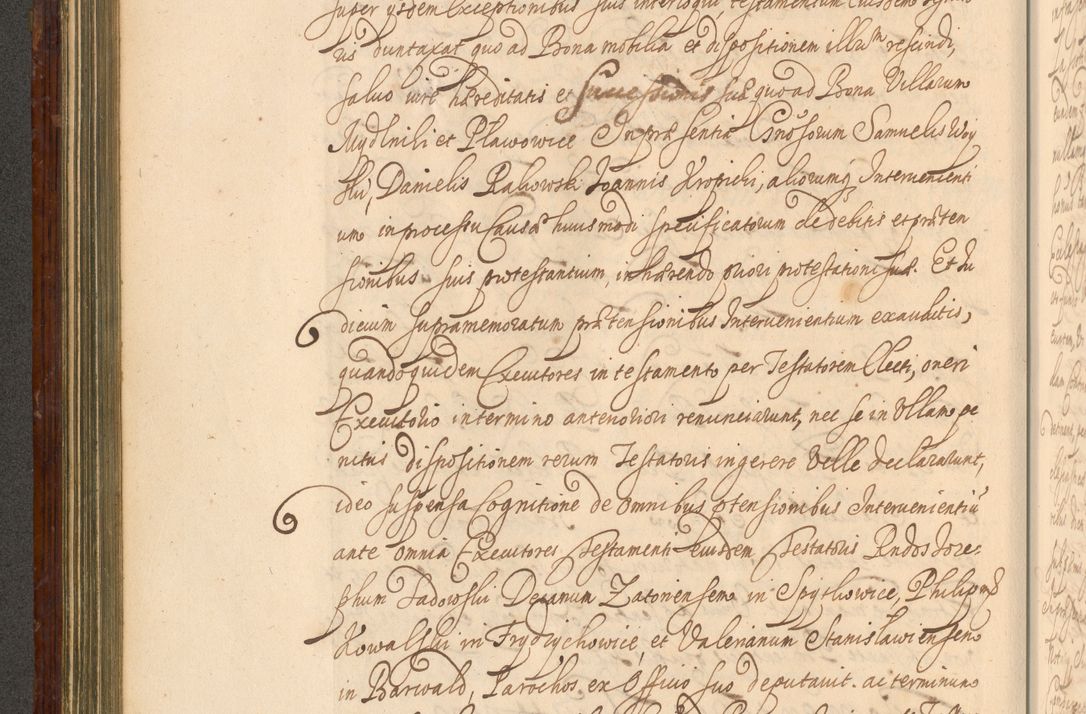 super ysdem Exceptionibus suis interloqui, testamentum
us duntaxat quo ad Bona mobilia et dispositionem illarum rescindi,
saluo iure hæreditatis et successionis suæ quo ad Bona Villarum
Mydlniki et Plawowice In præsentia Gnosorum Samuelis Woy
ski, Danielis Rakowski Joannis Kropicki, aliorumq Intervenienti
um in processu Causæ huiusmodi specificatorum de debitis et præten
sionibus suis protestantium, inhærendo priori protestationi suæ. Et Iu
dicium supramemoratum prætensionibus Intervenientium exauditis,
quandoquidem Executores in testamento per Testatorem Electi, oneri
Executorio in termino anteriori renunciarunt, nec se in Ullam pe
nitus dispositionem rerum Testatoris ingerere Velle declararunt,
ideo suspensa Cognitione de omnibus ptensionibus Intervenientiũ
ante omnia Executores Testamenti eiusdem Testatoris Rndos Jose-
phum Fadowski Decanum Zatoriensem in Spytkowice, Philippũ
Kowalski in Frydrychowice, et Valerianum Stanislawiensem
in Barwald, Parochos ex Officio suo deputauit. ac terminum